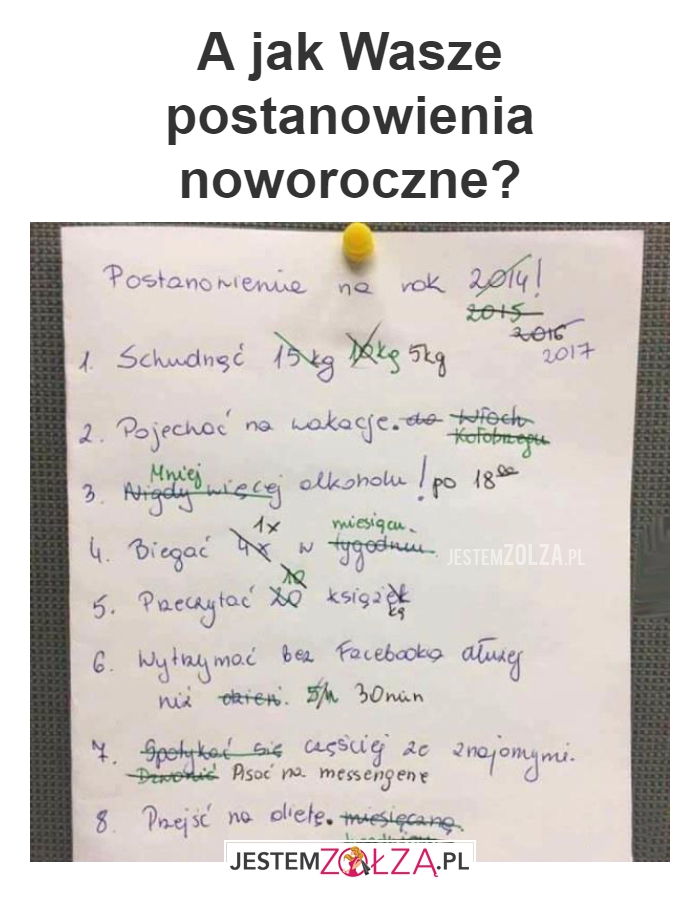 A jak Wasze
postanowienia
noworoczne?
Postanowienia na rok 2014!
2015
2016
2017
1. Schudnąć 15kg 10kg 5kg
2. Pojechać na wakacje. do Włoch
Kołobrzegu
Mniej
3. Nigdy więcej alkoholu! po 18⁰⁰
1x miesiącu.
4. Biegać 4x w tygodniu.
JESTEMZOLZA.PL
10
5. Przeczytać 20 książek
kę
6. Wytrzymać bez Facebooka dłużej
niż dzień. 5h 30min
7. Spotykać się częściej ze znajomymi.
Dzwonić Pisać na messengerze
8. Przejść na dietę. miesięczną.
JESTEMZOŁZA.PL